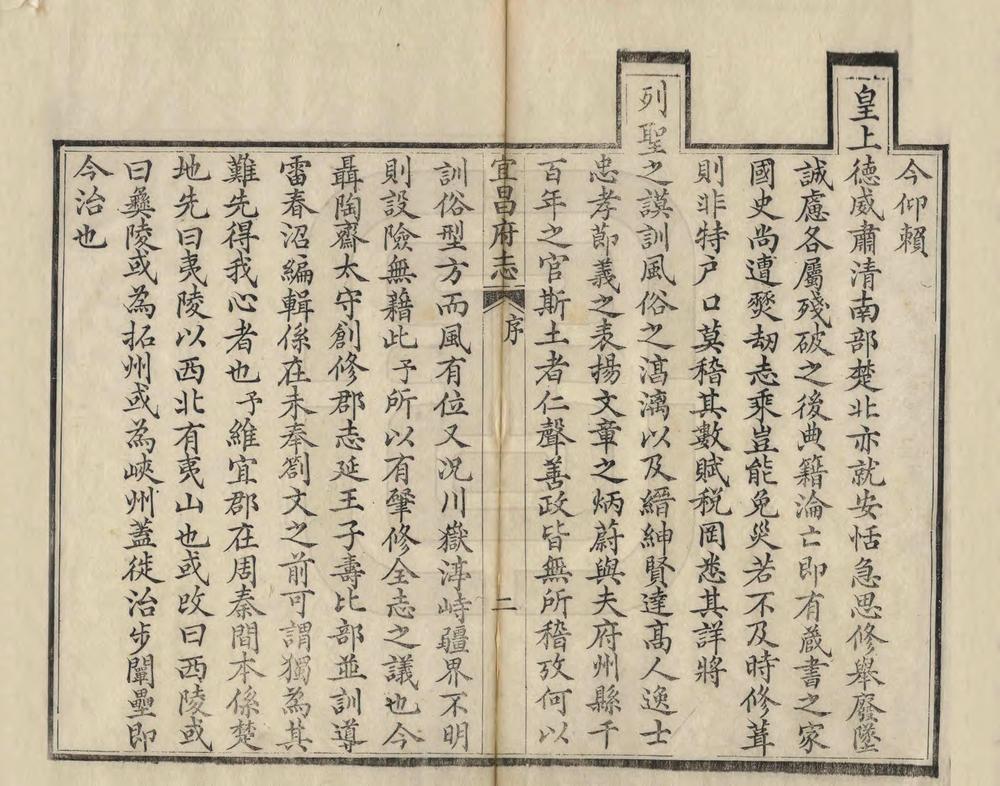 今仰賴
皇上德威肅清南部楚北亦就安恬急思修舉廢墜
誠慮各屬殘破之後典籍淪亡即有藏書之家
國史尚遭爂刼志乘豈能免災若不及時修葺
則非特户口莫稽其數賦税罔悉其詳將
列聖之謨訓風俗之湻漓以及縉紳賢達高人逸士
忠孝節義之表揚文章之炳蔚與夫府州縣千
百年之官斯土者仁聲善政皆無所稽攷何以
宜昌府志 序 二
訓俗型方而風有位又況川嶽渟峙疆界不明
則設險無藉此予所以有肇修全志之議也今
聶陶齋太守創修郡志延王子壽比部並訓導
雷春沼編輯係在未奉劄文之前可謂獨為其
難先得我心者也予維宜郡在周秦間本係楚
地先曰夷陵以西北有夷山也或改曰西陵或
曰彝陵或為拓州或為峽州蓋徙治步闡壘即
今治也